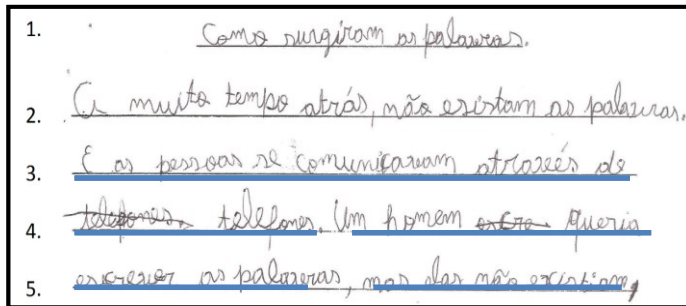 1. Como surgiram as palavras.
2. A muito tempo atrás, não existam as palavras.
3. E as pessoas se comunicavam através de
4. telefones. telefones. Um homem queria
5. escrever as palavras, mas elas não existiam,